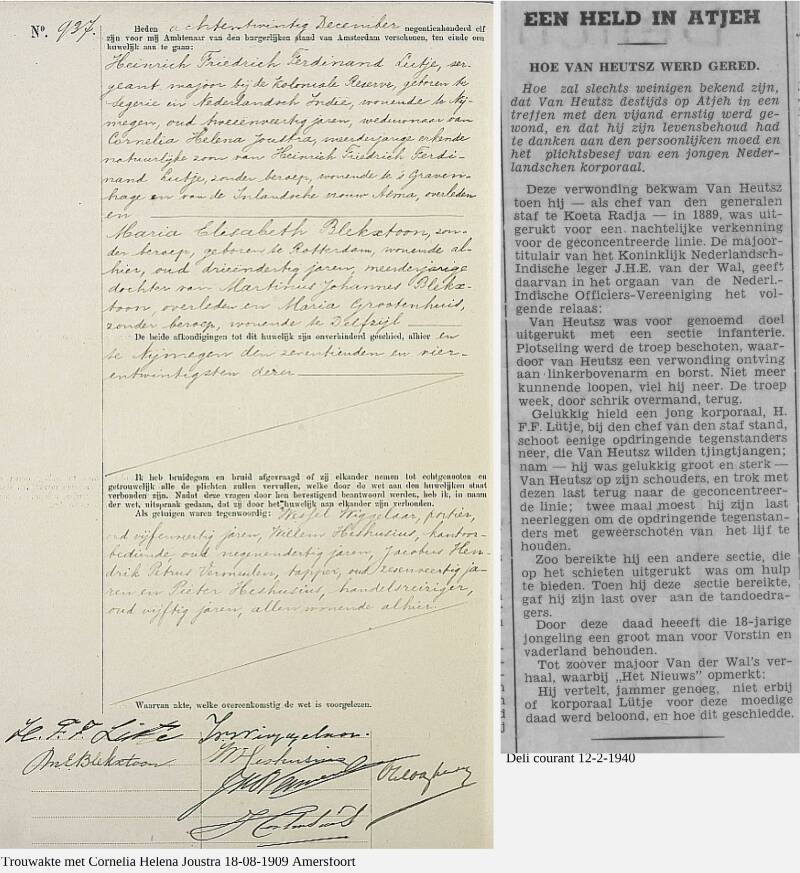 No. 937.
Heden achtentwintig December negentienhonderd elf
zijn voor mij Ambtenaar van den burgerlijken stand van Amsterdam verschenen, ten einde een
huwelijk aan te gaan:
Heinrich Friedrich Ferdinand Lütje, ser-
geant majoor bij de Koloniale Reserve, geboren te
Segerie in Nederlandsch Indië, wonende te Nij-
megen, oud tweeenveertig jaren, weduwnaar van
Cornelia Helena Joustra, meerderjarige erkende
natuurlijke zoon van Heinrich Friedrich Ferdi-
nand Lütje, zonder beroep, wonende te 's Graven-
hage en van de Inlandsche vrouw Nema, overleden
en
Maria Elisabeth Blekxtoon, zon-
der beroep, geboren te Rotterdam, wonende al-
hier, oud drieendertig jaren, meerderjarige
dochter van Martinus Johannes Blekx-
toon, overleden en Maria Grootenhuis,
zonder beroep, wonende te Delfzijl
De beide afkondigingen tot dit huwelijk zijn onverhinderd geschied, alhier en
te Nijmegen den zeventienden en vier-
entwintigsten dezer
Ik heb bruidegom en bruid afgevraagd of zij elkander nemen tot echtgenooten en
getrouwelijk alle de plichten zullen vervullen, welke door de wet aan den huwelijken staat
verbonden zijn. Nadat deze vragen door hen bevestigend beantwoord werden, heb ik, in naam
der wet, uitspraak gedaan, dat zij door het huwelijk aan elkander zijn verbonden.
Als getuigen waren tegenwoordig: Wessel Wiggelaar, portier,
oud vijfenveertig jaren, Willem Heshusius, kantoor-
bediende, oud negenendertig jaren, Jacobus Hen-
drik Petrus Vermeulen, tapper, oud zesenveertig ja-
ren en Pieter Heshusius, handelsreiziger,
oud vijftig jaren, allen wonende alhier.
Waarvan akte, welke overeenkomstig de wet is voorgelezen.
H. F. F. Lütje
M E Blekxtoon
W Heshusius
Trouwakte met Cornelia Helena Joustra 18-08-1909 Amersfoort
EEN HELD IN ATJEH
HOE VAN HEUTSZ WERD GERED.
Hoe zal slechts weinigen bekend zijn,
dat Van Heutsz destijds op Atjeh in een
treffen met den vijand ernstig werd ge-
wond, en dat hij zijn levensbehoud had
te danken aan den persoonlijken moed en
het plichtsbesef van een jongen Neder-
landschen korporaal.
Deze verwonding bekwam Van Heutsz
toen hij — als chef van den generalen
staf te Koeta Radja — in 1889, was uit-
gerukt voor een nachtelijke verkenning
voor de geconcentreerde linie. De majoor-
titulair van het Koninklijk Nederlandsch-
Indische leger J.H.E. van der Wal, geeft
daarvan in het orgaan van de Nederl.-
Indische Officiers-Vereeniging het vol-
gende relaas:
Van Heutsz was voor genoemd doel
uitgerukt met een sectie infanterie.
Plotseling werd de troep beschoten, waar-
door van Heutsz een verwonding ontving
aan linkerbovenarm en borst. Niet meer
kunnende loopen, viel hij neer. De troep
week, door schrik overmand, terug.
Gelukkig hield een jong korporaal, H.
F.F. Lütje, bij den chef van den staf stand,
schoot eenige opdringende tegenstanders
neer, die Van Heutsz wilden tjingtjangen;
nam — hij was gelukkig groot en sterk —
Van Heutsz op zijn schouders, en trok met
dezen last terug naar de geconcentreer-
de linie; twee maal moest hij zijn last
neerleggen om de opdringende tegenstan-
ders met geweerschoten van het lijf te
houden.
Zoo bereikte hij een andere sectie, die
op het schieten uitgerukt was om hulp
te bieden. Toen hij deze sectie bereikte,
gaf hij zijn last over aan de tandoedra-
gers.
Door deze daad heeeft die 18-jarige
jongeling een groot man voor Vorstin en
vaderland behouden.
Tot zoover majoor Van der Wal's ver-
haal, waarbij „Het Nieuws" opmerkt:
Hij vertelt, jammer genoeg, niet erbij
of korporaal Lütje voor deze moedige
daad werd beloond, en hoe dit geschiedde.
Deli courant 12-2-1940